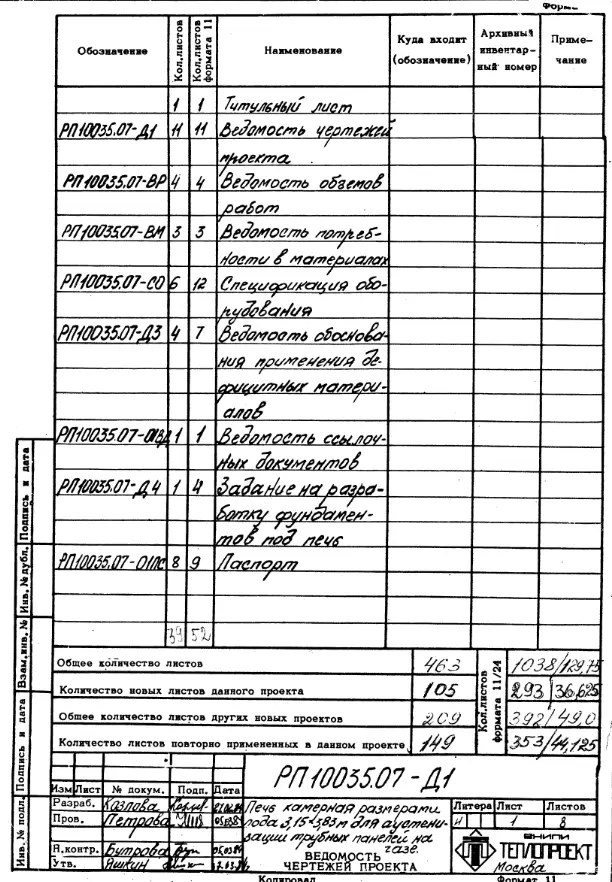 Обозначение Кол.листов Кол.листов формата 11 Наименование Куда входит (обозначение) Архивный инвентарный номер Примечание
1 1 Титульный лист
РП10035.07-Д1 11 11 Ведомость чертежей
проекта
РП10035.07-ВР 4 4 Ведомость объемов
работ
РП10035.07-ВМ 3 3 Ведомость потреб-
ности в материалах
РП10035.07-СО 6 12 Спецификация обо-
рудования
РП10035.07-Д3 4 7 Ведомость обоснова-
ния применения де-
фицитных матери-
алов
РП10035.07-01ВД 1 1 Ведомость ссылоч-
ных документов
РП10035.07-Д4 1 4 Задание на разра-
ботку фундамен-
тов под печь
РП10035.07-01ПС 8 9 Паспорт
39 52
Общее количество листов 463 Кол.листов формата 11/24 1038/129,75
Количество новых листов данного проекта 105 293/36,625
Общее количество листов других новых проектов 209 392/49,0
Количество листов повторно примененных в данном проекте 149 353/44,125
РП10035.07-Д1
Изм Лист № докум. Подп. Дата
Разраб. Козлова
Пров. Петрова
Н.контр. Бутрова
Утв. Яшкин
Печь камерная размерами
пода 3,15×5,85 м для аустени-
зации трубных панелей на
газе.
ВЕДОМОСТЬ
ЧЕРТЕЖЕЙ ПРОЕКТА
Литера Лист Листов
И 1 8
ВНИПИ
ТЕПЛОПРОЕКТ
Москва
Копировал Формат 11
Инв. № подл. Подпись и дата Взам.инв. № Инв. № дубл. Подпись и дата